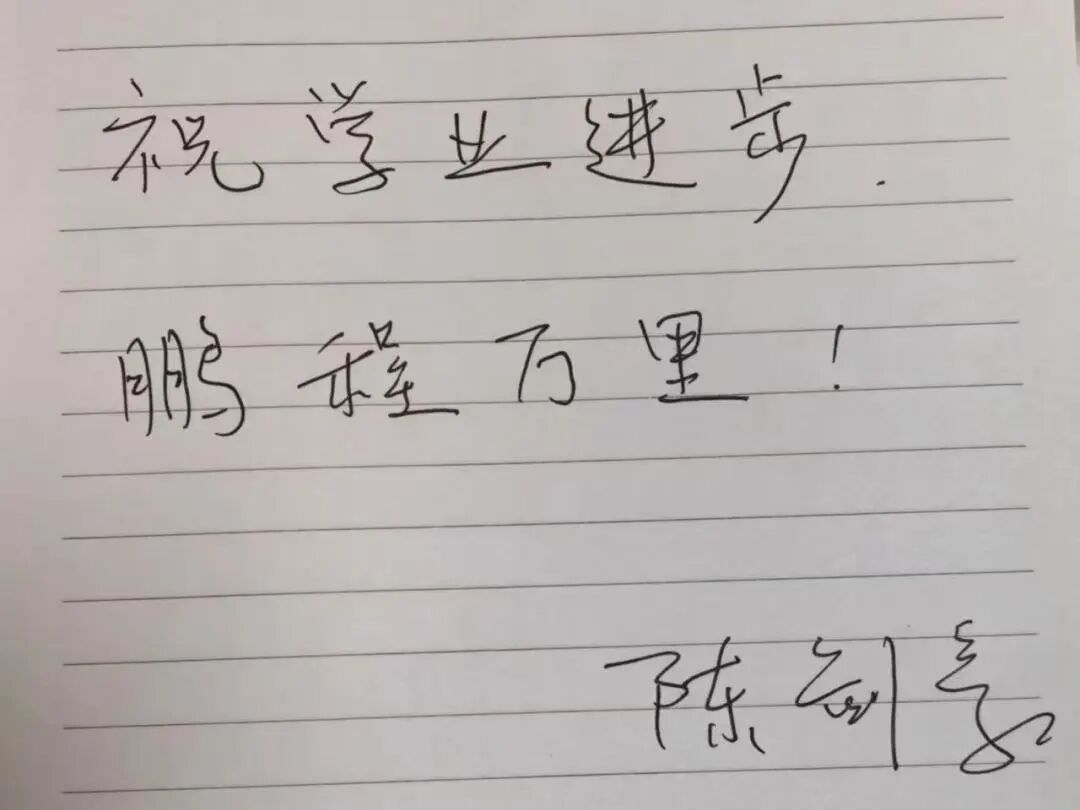 祝学业进步.
鹏程万里!
陈剑